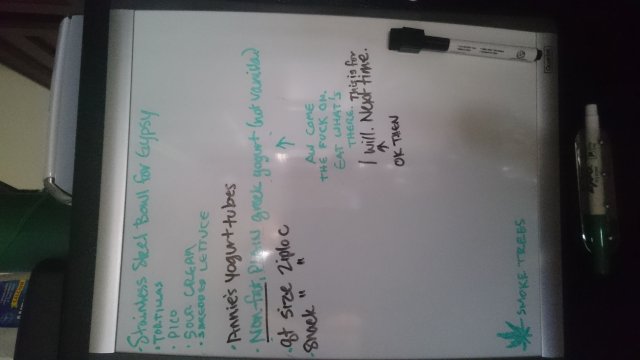 • Stainless Steel Bowl for Gypsy
• TORTILLAS
• PICO
• SOUR CREAM
• SHREDDED LETTUCE
• Annie's Yogurt-tubes
• Non-fat, PLAIN greek yogurt (not vanilla)
• qt size ziploc
• Snack " "
↑
AW COME
THE FUCK ON.
EAT WHAT'S
THERE. This is for
I will. Next time.
↑
OK THEN
SMOKE TREES